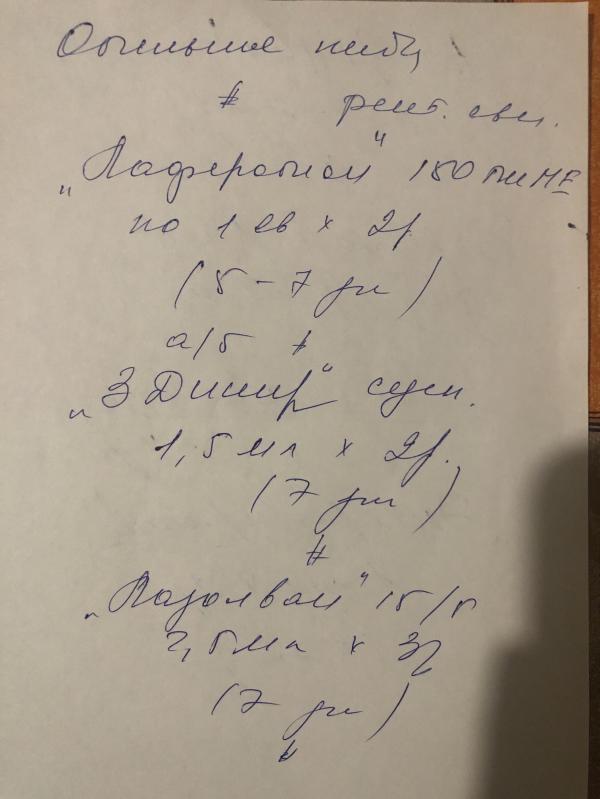 # рект. свеч.
„Лаферобион" 150 тыс МЕ
по 1 св х 2р
(5-7 дн)
а/б
„3 Динир" сусп.
1,5 мл х 2р.
(7 дн)
#
„Лазолван" 15/5
2,5 мл х 3р
(7 дн)